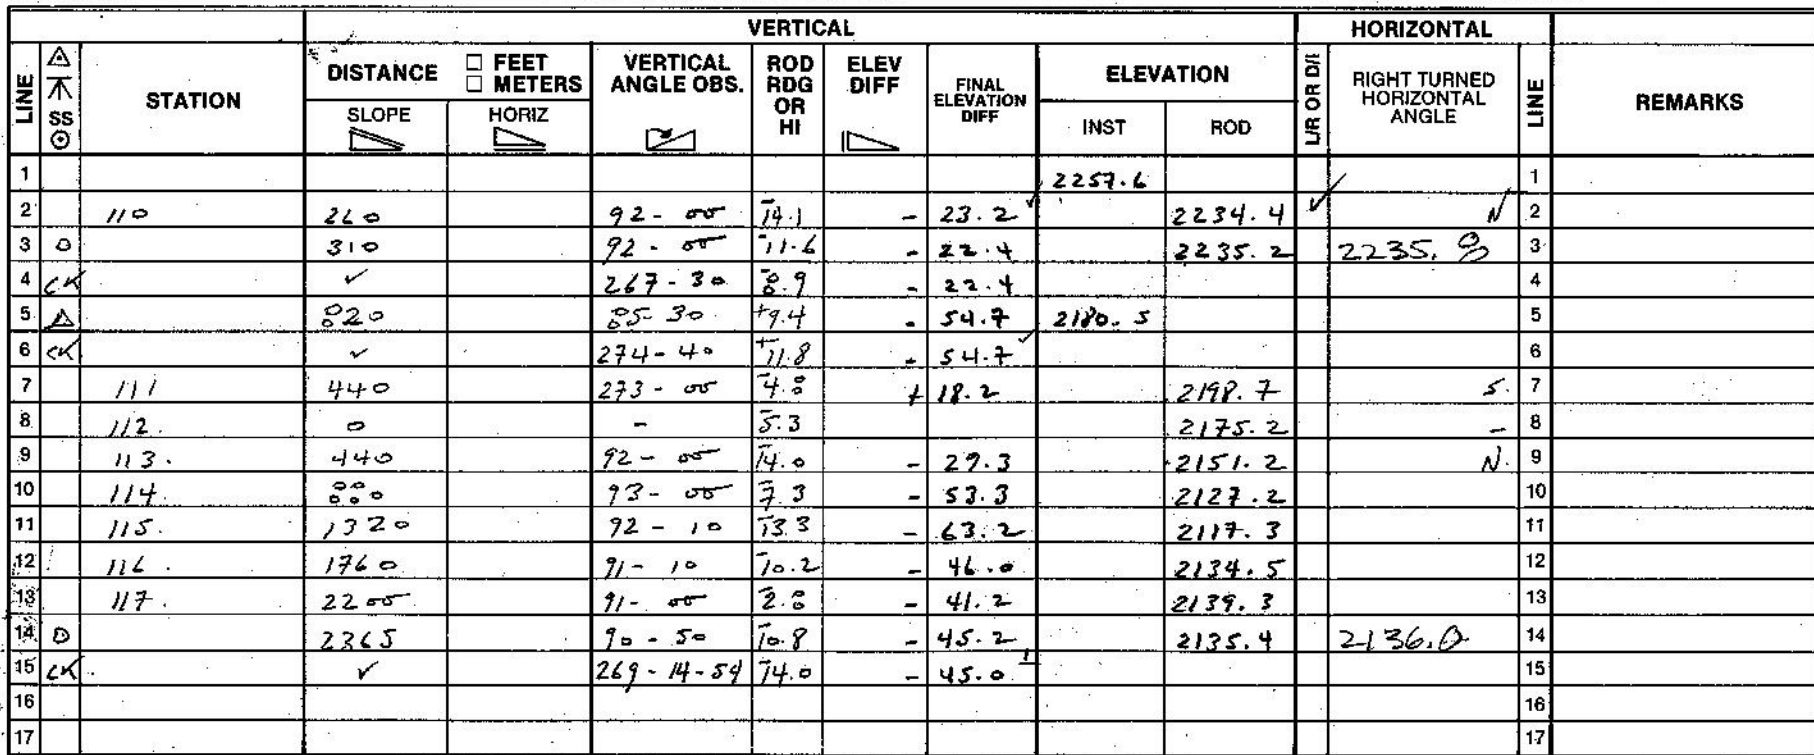 VERTICAL HORIZONTAL
LINE SS STATION DISTANCE □ FEET □ METERS SLOPE HORIZ VERTICAL ANGLE OBS. ROD RDG OR HI ELEV DIFF FINAL ELEVATION DIFF ELEVATION INST ROD L/R OR D/I RIGHT TURNED HORIZONTAL ANGLE LINE REMARKS
1 2257.6 1
2 110 260 92- 00 -14.1 - 23.2 ✓ 2234.4 ✓ N 2
3 0 310 92- 00 -11.6 - 22.4 2235.2 2235. 3
4 CK ✓ 267-30 -8.9 - 22.4 4
5 △ 820 85-30 +9.4 - 54.7 2180.5 5
6 CK ✓ 274-40 +11.8 - 54.7 ✓ 6
7 111 440 273- 00 -4.8 + 18.2 2198.7 S. 7
8 112. 0 - -5.3 2175.2 - 8
9 113. 440 92- 00 -14.0 - 29.3 2151.2 N. 9
10 114. 880 93- 00 -7.3 - 53.3 2127.2 10
11 115. 1320 92-10 -13.3 - 63.2 2117.3 11
12 116. 1760 91-10 -10.2 - 46.0 2134.5 12
13 117. 2200 91- 00 -2.8 - 41.2 2139.3 13
14 0 2365 90-50 -10.8 - 45.2 2135.4 2136.0 14
15 CK ✓ 269-14-54 -14.0 - 45.0 15
16 16
17 17